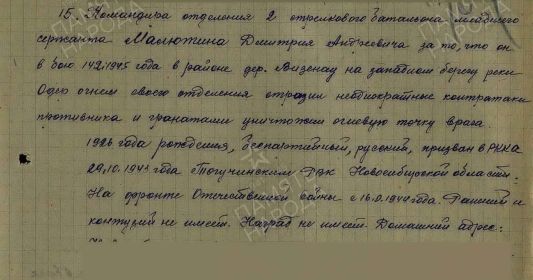 15. Командира отделения 2 стрелкового батальона младшего
сержанта Малютина Дмитрия Андреевича за то, что он
в бою 14.2.1945 года в районе дер. Визенау на западном берегу реки
Одер огнем своего отделения отразил неоднократные контратаки
противника и гранатами уничтожил огневую точку врага.
1926 года рождения, беспартийный, русский, призван в РККА
29.10.1943 года Тогучинским РВК Новосибирской области.
На фронте Отечественной войны с года. Ранений и
контузий не имеет. Наград не имеет. Домашний адрес:
ПАМЯТЬ НАРОДА